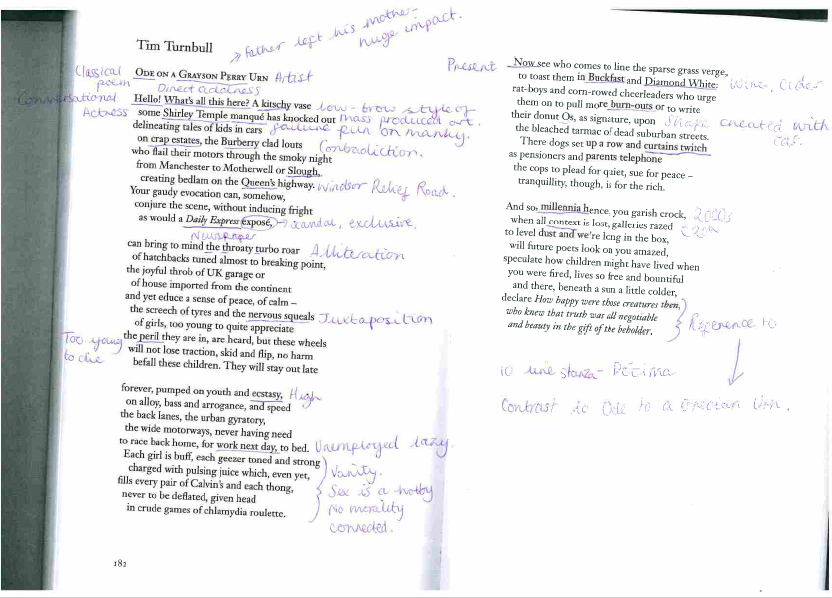 Tim Turnbull
» Father left his mother-
huge impact.
Classical
poem
ODE ON A GRAYSON PERRY URN Artist
Direct address
Conversational
Hello! What's all this here? A kitschy vase low-brow style of
some Shirley Temple manqué has knocked out mass produced art.
Actress
delineating tales of kids in cars failure pun on manky.
on crap estates, the Burberry clad louts Contradiction.
who flail their motors through the smoky night
from Manchester to Motherwell or Slough,
creating bedlam on the Queen's highway. Windsor Relief Road.
Your gaudy evocation can, somehow,
conjure the scene, without inducing fright
as would a Daily Express exposé, → scandal, exclusive.
Newspaper
can bring to mind the throaty turbo roar Alliteration
of hatchbacks tuned almost to breaking point,
the joyful throb of UK garage or
of house imported from the continent
and yet educe a sense of peace, of calm –
the screech of tyres and the nervous squeals Juxtaposition
of girls, too young to quite appreciate
Too young
to die
the peril they are in, are heard, but these wheels
will not lose traction, skid and flip, no harm
befall these children. They will stay out late
forever, pumped on youth and ecstasy, High
on alloy, bass and arrogance, and speed
the back lanes, the urban gyratory,
the wide motorways, never having need
to race back home, for work next day, to bed. Unemployed lazy.
Each girl is buff, each geezer toned and strong
charged with pulsing juice which, even yet, Vanity.
fills every pair of Calvin's and each thong, Sex is a hobby
never to be deflated, given head No morality
in crude games of chlamydia roulette.
connected.
182
Present
Now see who comes to line the sparse grass verge,
to toast them in Buckfast and Diamond White: Wine, Cider
rat-boys and corn-rowed cheerleaders who urge
them on to pull more burn-outs or to write
their donut Os, as signature, upon Shape created with
the bleached tarmac of dead suburban streets. car.
There dogs set up a row and curtains twitch
as pensioners and parents telephone
the cops to plead for quiet, sue for peace –
tranquility, though, is for the rich.
And so, millennia hence, you garish crock, 2000s
when all context is lost, galleries razed
to level dust and we're long in the box,
will future poets look on you amazed,
speculate how children might have lived when
you were fired, lives so free and bountiful
and there, beneath a sun a little colder,
declare How happy were those creatures then,
who knew that truth was all negotiable
and beauty in the gift of the beholder. Reference to
10 line stanza- Decima
Contrast to Ode to a Grecian Urn.